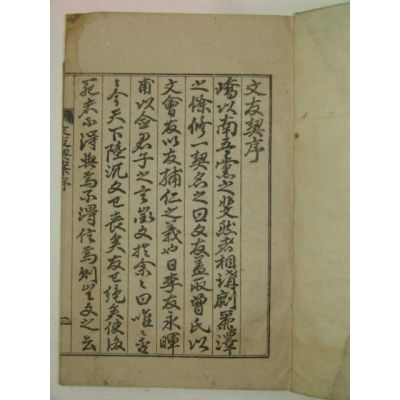 文友契序
嶠以南吾黨之斐然者相講劘麗澤
之餘修一契名之曰文友盖取曾氏以
文會友以友輔仁之義也日李友永暉
甫以僉君子之言徵文於余余曰唯唯否
否今天下陸沉文已喪矣友已絶矣使後
死者不得與焉不得信焉則豈文之云
文友契序